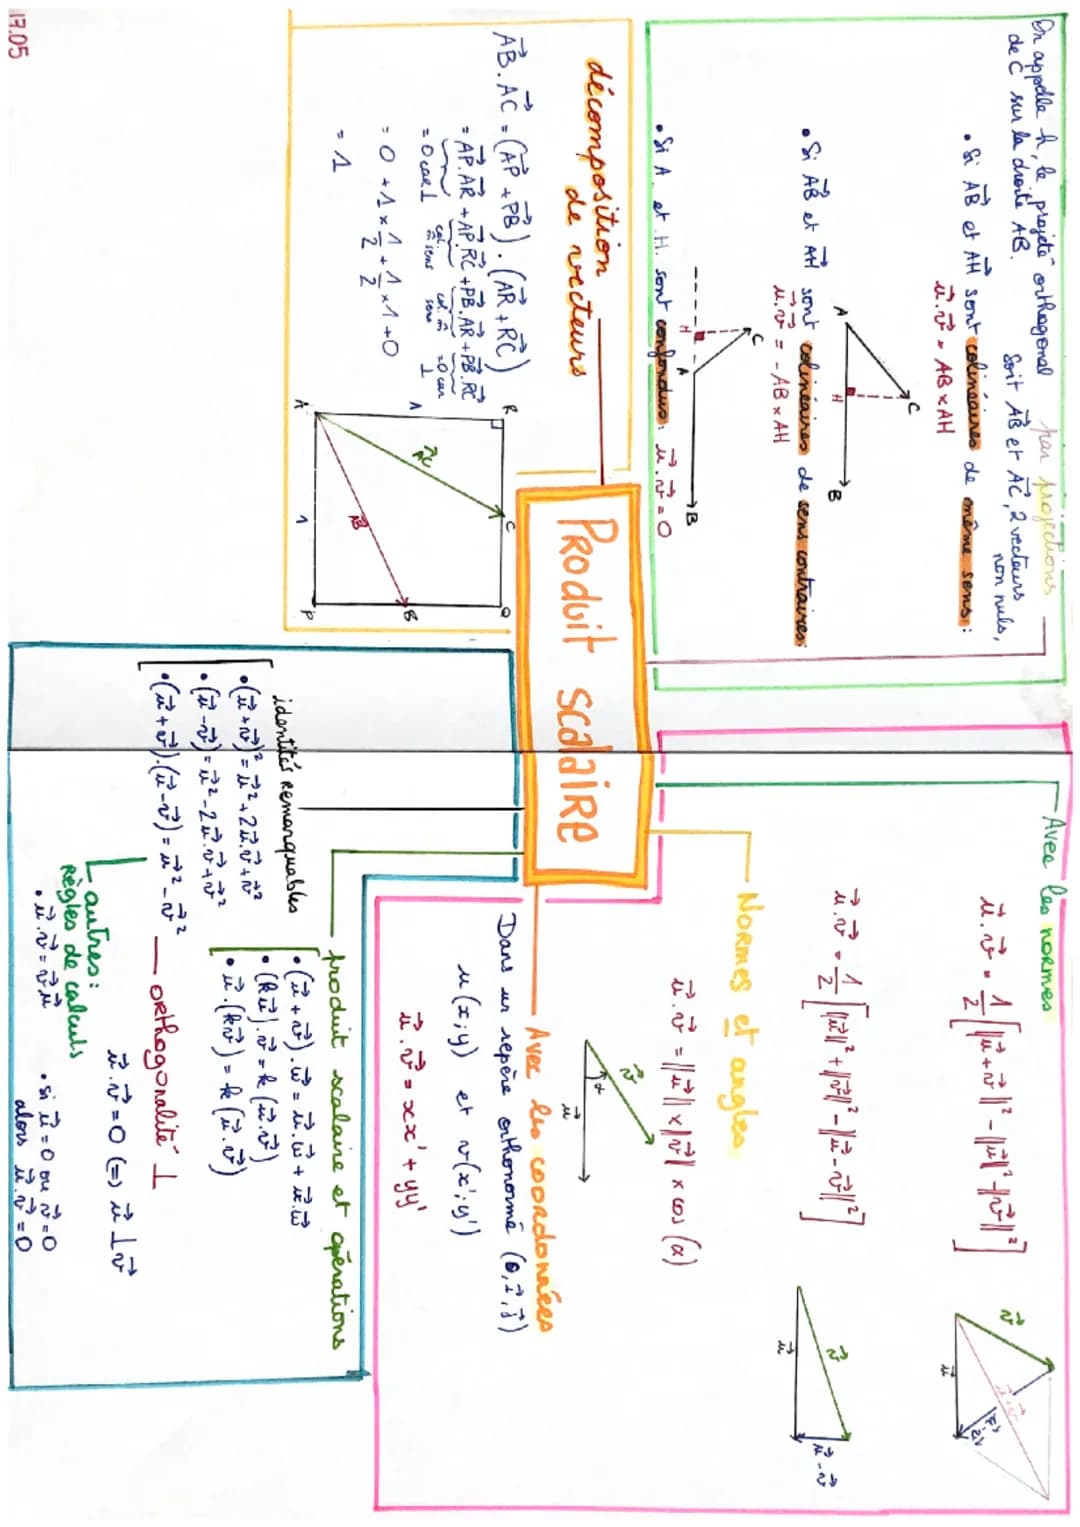 PRODUIT SCALAIRE
par projections
On appelle h, le projeté orthogonal
de C sur la droite AB.
Soit AB→ et AC→, 2 vecteurs
non nuls,
• Si AB→ et AH→ sont colinéaires de même sens :
u→.v→ = AB×AH
A
H
B
C
• Si AB→ et AH→ sont colinéaires de sens contraires:
u→.v→ = -AB×AH
C
H
A
B
• Si A et H sont confondus: u→.v→ = 0
décomposition
de vecteurs
AB→.AC→ = (AP→ + PB→).(AR→ + RC→)
= AP→.AR→ + AP→.RC→ + PB→.AR→ + PB→.RC→
= 0 car ⊥ col. m̂ sens col. m̂ sens = 0 car ⊥
= 0 + 1 × 1/2 + 1/2 × 1 + 0
= 1
R
C
Q
1
AC→
AB→
B
A
1
P
17.05
Avec les normes
u→.v→ = 1/2 [||u→+v→||² - ||u→||² - ||v→||²]
v→
u→+v→
u→
u→.v→ = 1/2 [||u→||² + ||v→||² - ||u→-v→||²]
v→
u→
u→-v→
NORMES et angles
u→.v→ = ||u→|| × ||v→|| × cos (α)
v→
α
u→
Avec les coordonnées
Dans un repère orthonormé (O, i→, j→)
u(x;y) et v(x';y')
u→.v→ = xx' + yy'
produit scalaire et opérations
• (u→ + v→).w→ = u→.w→ + u→.w→
• (ku→).v→ = k(u→.v→)
• u→.(kv→) = k(u→.v→)
identités remarquables
• (u→+v→)² = u→² + 2u→.v→ + v→²
• (u→-v→) = u→² - 2u→.v→ + v→²
• (u→+v→).(u→-v→) = u→² - v→²
ORthogonalité ⊥
u→.v→ = 0 (=) u→ ⊥ v→
autres :
Règles de calculs
• u→.v→ = v→.u→
• si u→ = 0 ou v→ = 0
alors u→.v→ = 0